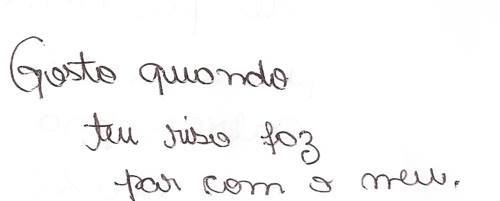 Gosto quando
teu riso faz
par com o meu.